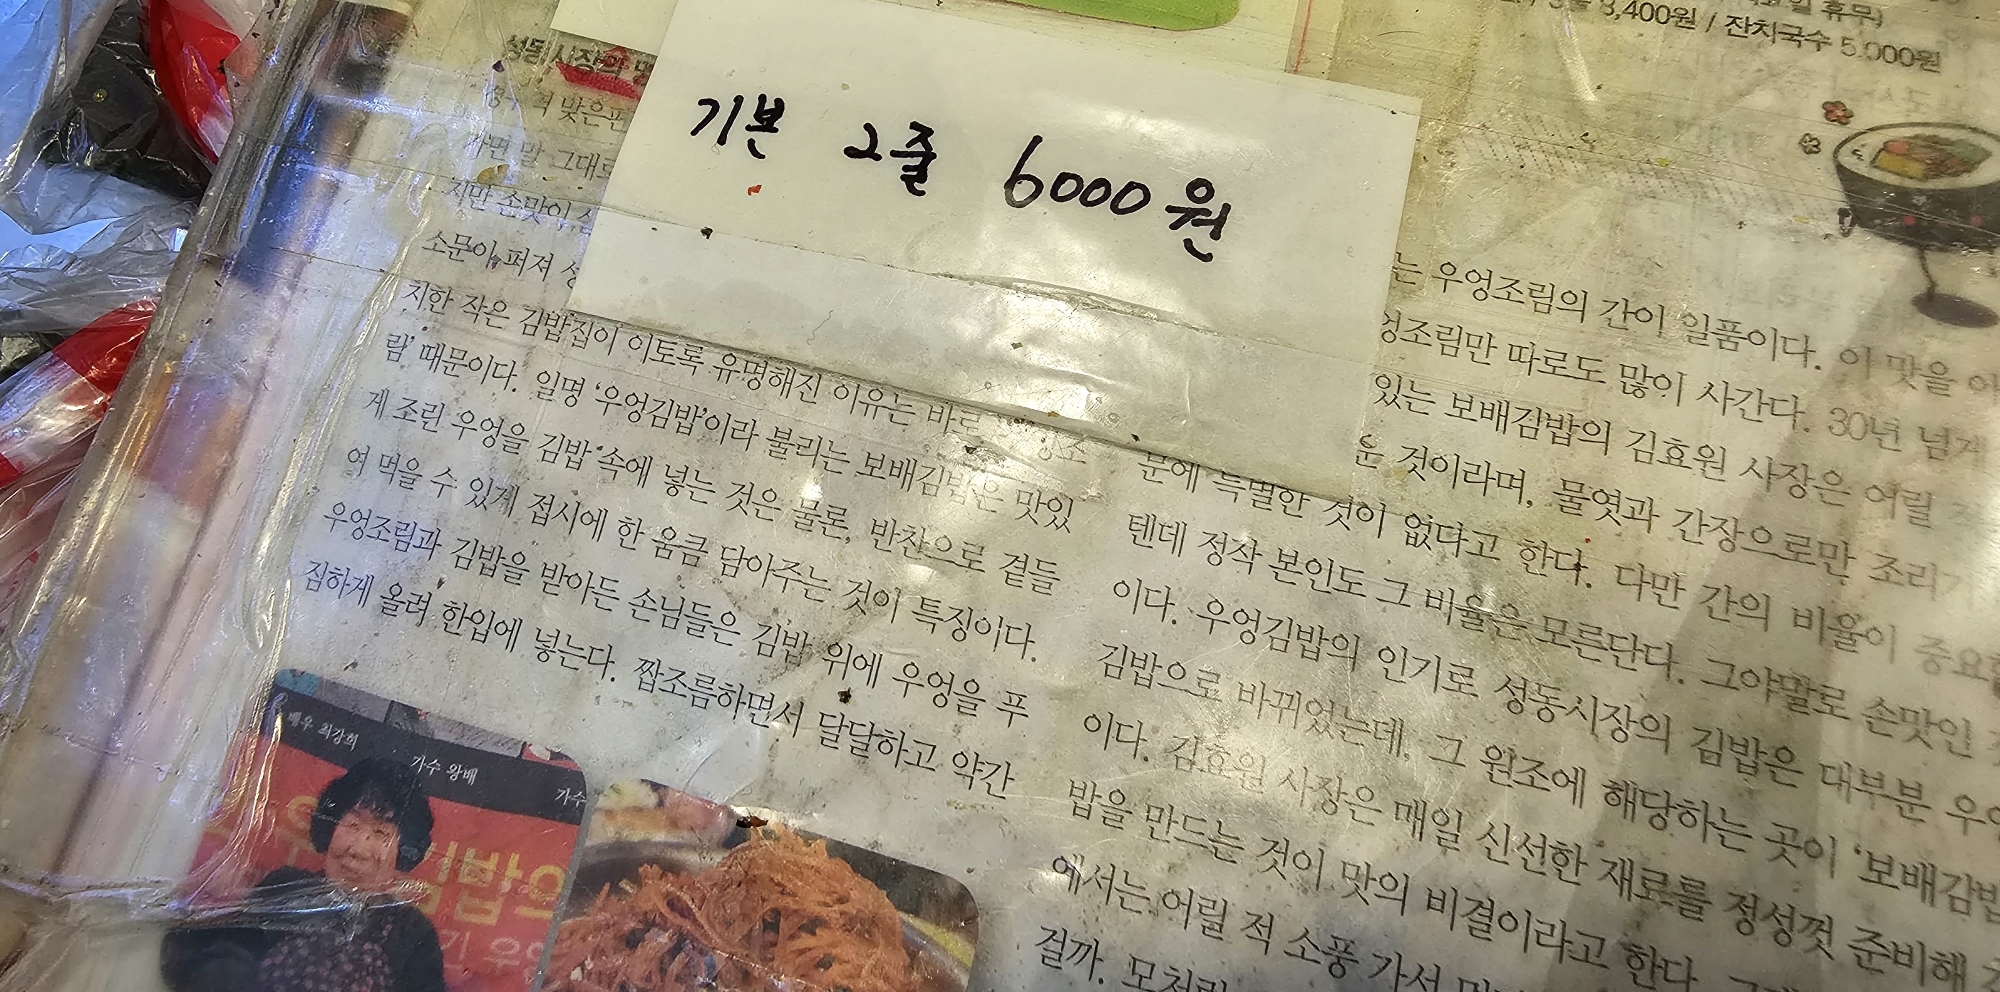 8,400원 / 잔치국수 5,000원
성동시장의
맞은편
말 그대로
지만 손맛이
소문이 퍼져
치한 작은 김밥집이 이토록 유명해진 이유는 바로
람' 때문이다. 일명 '우엉김밥'이라 불리는 보배김밥은 맛있
게 조린 우엉을 김밥 속에 넣는 것은 물론, 반찬으로 곁들
여 먹을 수 있게 접시에 한 움큼 담아주는 것이 특징이다.
우엉조림과 김밥을 받아든 손님들은 김밥 위에 우엉을 푸
짐하게 올려 한입에 넣는다. 짭조름하면서 달달하고 약간
기본 2줄 6000원
는 우엉조림의 간이 일품이다. 이 맛을
엉조림만 따로도 많이 사간다. 30년 넘게
있는 보배김밥의 김효원 사장은 어릴
운 것이라며, 물엿과 간장으로만 조리기
문에 특별한 것이 없다고 한다. 다만 간의 비율이
텐데 정작 본인도 그 비율은 모른단다. 그야말로 손맛인
이다. 우엉김밥의 인기로 성동시장의 김밥은 대부분
김밥으로 바뀌었는데, 그 원조에 해당하는 곳이 '보배김밥
이다. 김효원 사장은 매일 신선한 재료를 정성껏 준비해
밥을 만드는 것이 맛의 비결이라고 한다.
에서는 어릴 적 소풍 가서
걸까.
배우 최강희
가수 왕배
가수